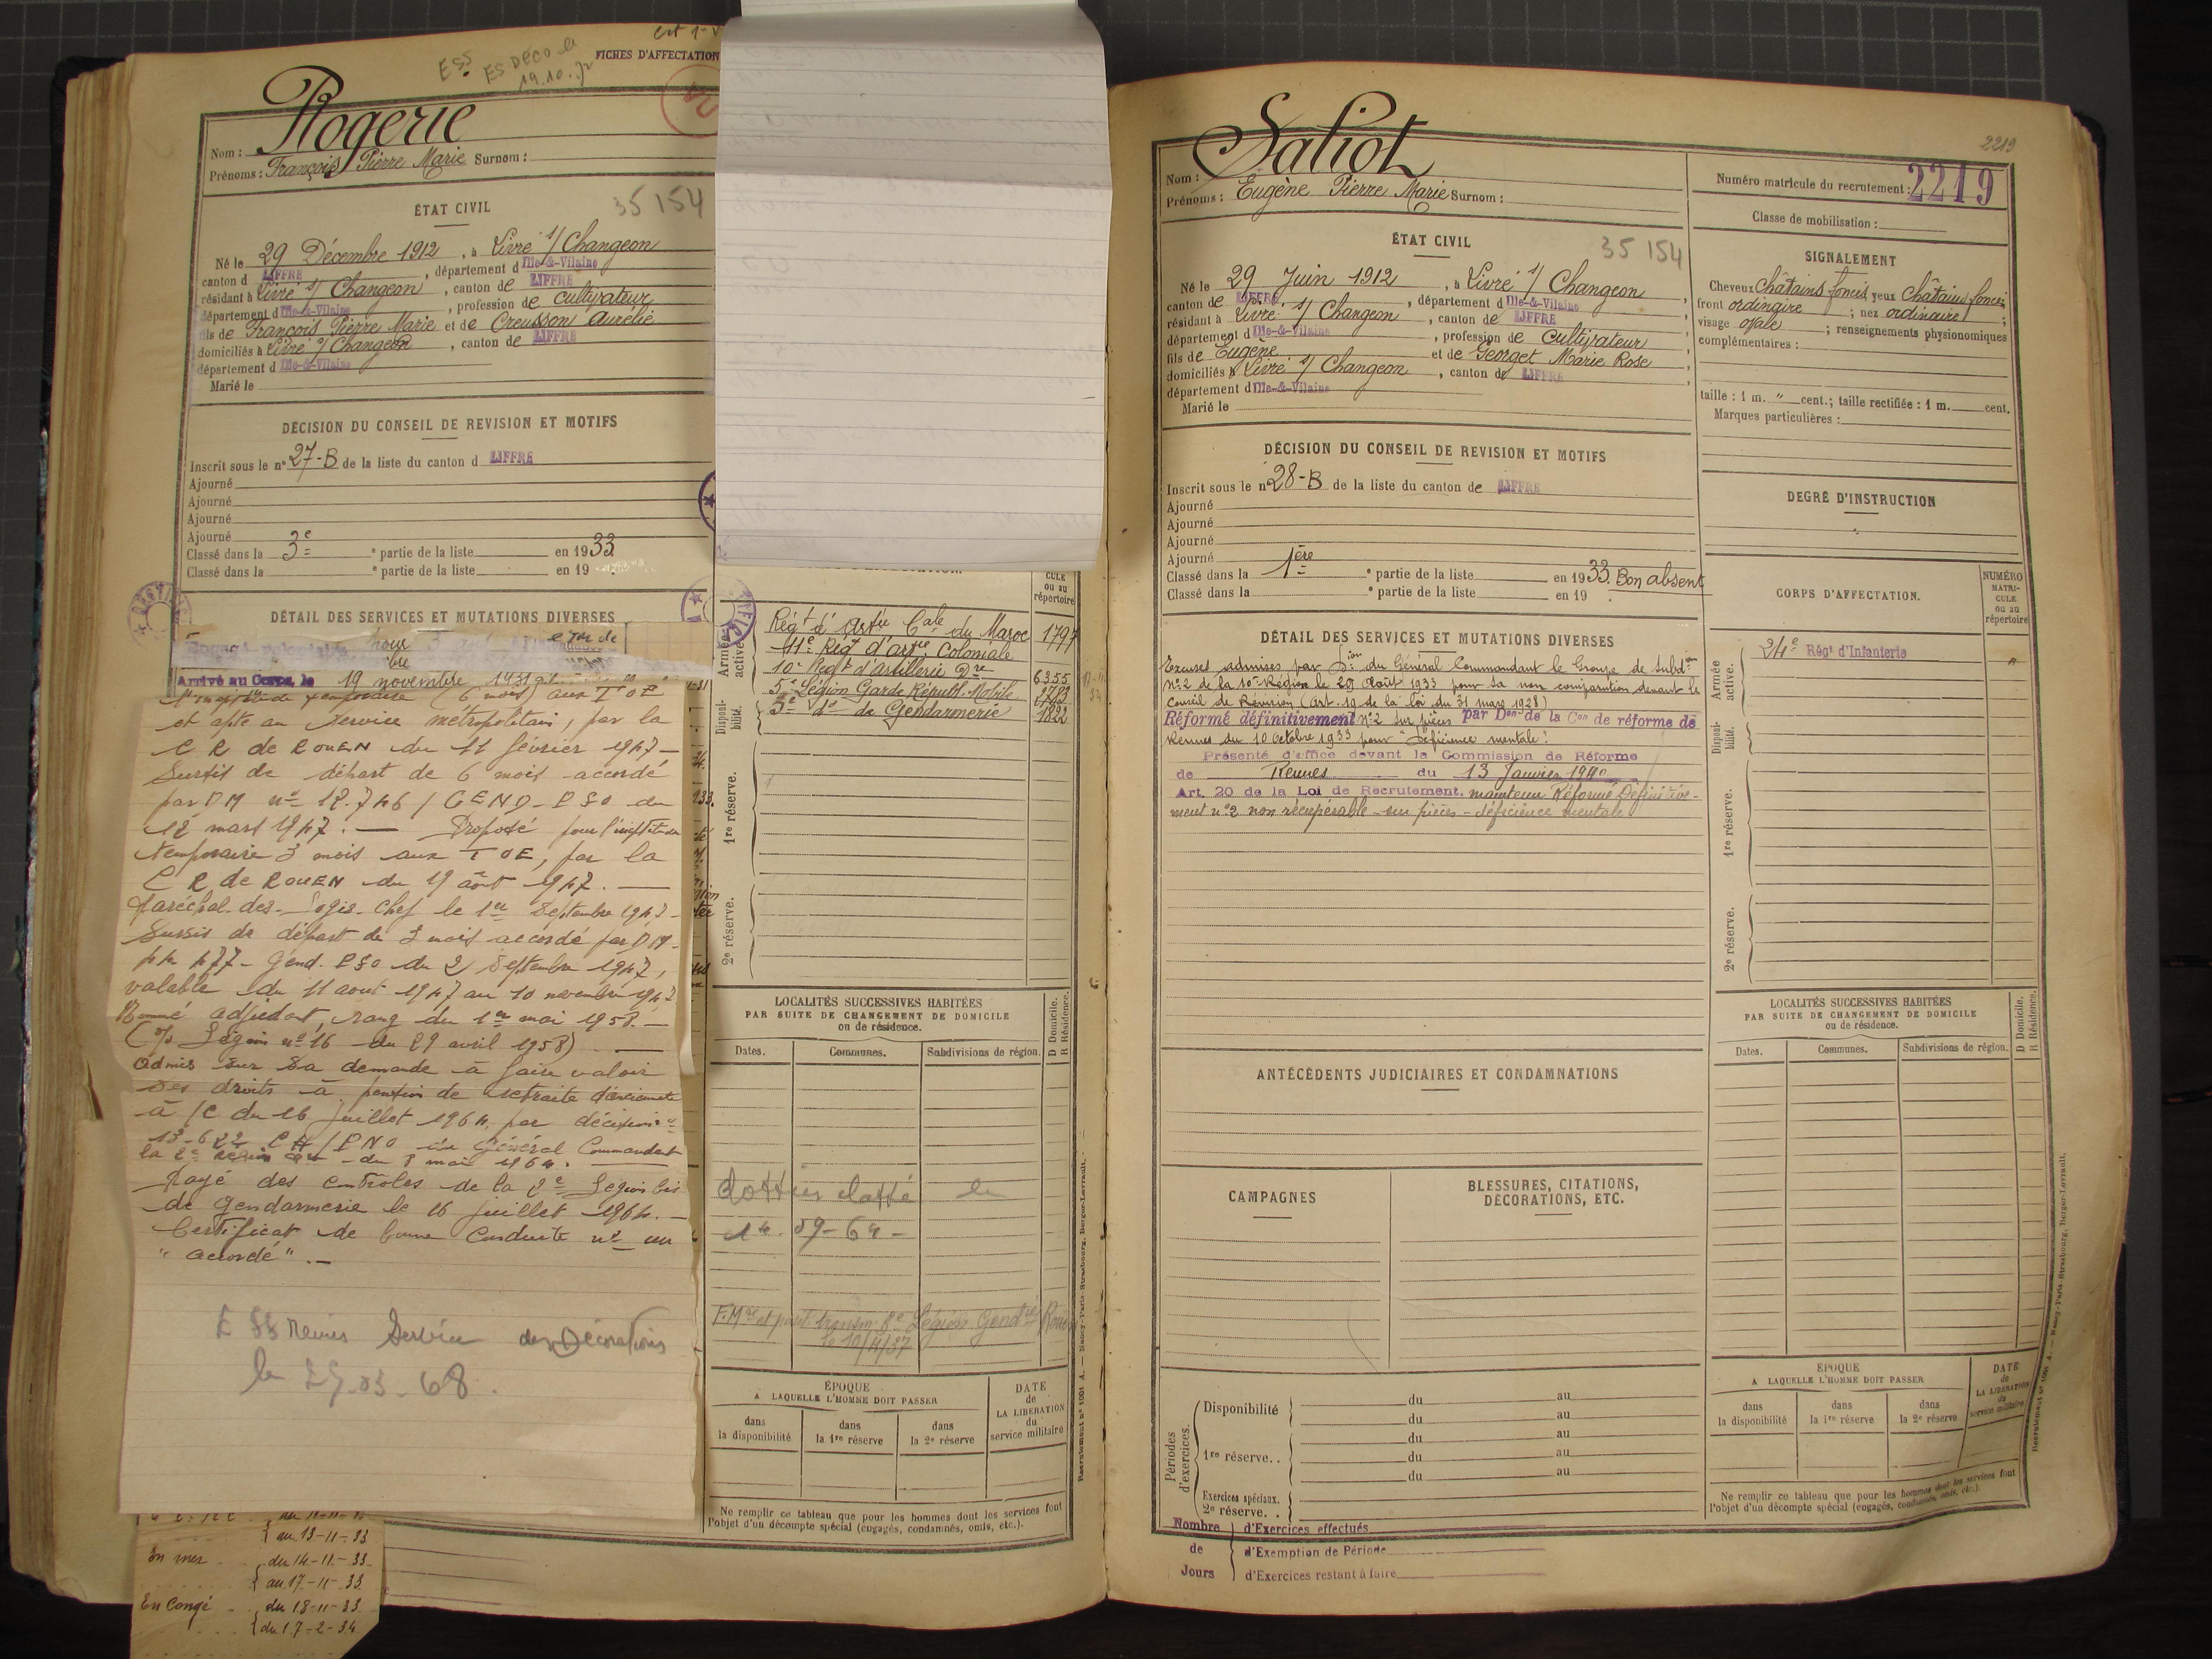 ESS ES DECO le
19.10.72
FICHES D'AFFECTATION
Nom : Rogerie
Prénoms : François Pierre Marie Surnom :
ÉTAT CIVIL
35 154
Né le 29 Décembre 1912, à Livré s/ Changeon
canton d LIFFRÉ, département d Ille-&-Vilaine
résidant à Livré s/ Changeon, canton de LIFFRÉ
département d Ille-&-Vilaine, profession de cultivateur
fils de François Pierre Marie et de Creusson Aurélie
domiciliés à Livré s/ Changeon, canton de LIFFRÉ
département d Ille-&-Vilaine
Marié le
DÉCISION DU CONSEIL DE REVISION ET MOTIFS
Inscrit sous le n° 27-B de la liste du canton d LIFFRÉ
Ajourné
Ajourné
Ajourné
Ajourné
Classé dans la 3e e partie de la liste en 1933
Classé dans la e partie de la liste en 19
DÉTAIL DES SERVICES ET MUTATIONS DIVERSES
Arrivé au Corps, le 19 novembre 1931
temporaire (6 mois) aux TOE
et apte au service métropolitain, par la
C R de ROUEN du 11 février 1947 —
Sursis de départ de 6 mois accordé
par DM n° 12.746 / GEND-PSO du
12 mars 1947. — Proposé pour l'inaptitude
temporaire 3 mois aux TOE, par la
C R de ROUEN du 19 août 1947. —
Maréchal-des-Logis-Chef le 1er Septembre 1947 —
Sursis de départ de 3 mois accordé par DM —
477 - Gend. PSO du 2 Septembre 1947,
valable du 11 aout 1947 au 10 novembre 1947
Nommé adjudant, rang du 1er mai 1958. —
(O/ Légion n° 16 du 29 avril 1958) —
admis sur sa demande à faire valoir
ses droits à pension de retraite d'ancienneté
à /C du 16 juillet 1964, par décision n°
13-622 /PNO du Général Commandant
la 2e Région du 8 mai 1964. —
Rayé des contrôles de la 2e Légion bis
de Gendarmerie le 16 juillet 1964. —
Certificat de bonne Conduite n° un
"accordé". —
E SS Rennes Service des Décorations
au 13-11-33
En mer du 14-11-33
au 17-11-33
En Congé du 18-11-33
du 17-2-34
CULE
ou au
répertoire
Armée active.
Régt d'Artie Cale du Maroc 1797
11e Régt d'artie Coloniale
10e Régt d'artillerie Dre 6355
Disponibilité.
5e Légion Garde Républ. Mobile 2783
3e do de Gendarmerie 1822
1re réserve.
2e réserve.
LOCALITÉS SUCCESSIVES HABITÉES
PAR SUITE DE CHANGEMENT DE DOMICILE
ou de résidence.
D Domicile.
R Résidence.
Dates. Communes. Subdivisions de région.
dossier classé le
F.Mre et part. transm. Légion Gendrie Rouen
le 10/4/37
ÉPOQUE
A LAQUELLE L'HOMME DOIT PASSER
DATE
de
LA LIBÉRATION
du
service militaire
dans
la disponibilité
dans
la 1re réserve
dans
la 2e réserve
Ne remplir ce tableau que pour les hommes dont les services font
l'objet d'un décompte spécial (engagés, condamnés, omis, etc.).
Recrutement n° 1091 A. — Nancy-Paris-Strasbourg, Berger-Levrault.
2219
Nom : Saliot
Prénoms : Eugène Pierre Marie Surnom :
Numéro matricule du recrutement : 2219
Classe de mobilisation :
ÉTAT CIVIL
35 154
Né le 29 Juin 1912, à Livré s/ Changeon,
canton de LIFFRÉ, département d Ille-&-Vilaine
résidant à Livré s/ Changeon, canton de LIFFRÉ
département d Ille-&-Vilaine, profession de Cultivateur
fils de Eugène et de Georget Marie Rose
domiciliés à Livré s/ Changeon, canton de LIFFRÉ
département d Ille-&-Vilaine
Marié le
SIGNALEMENT
Cheveux Châtains foncés yeux Châtains foncés;
front ordinaire ; nez ordinaire ;
visage ovale ; renseignements physionomiques
complémentaires :
taille : 1 m. " cent.; taille rectifiée : 1 m. cent.
Marques particulières :
DÉCISION DU CONSEIL DE REVISION ET MOTIFS
Inscrit sous le n° 28-B de la liste du canton de LIFFRÉ
Ajourné
Ajourné
Ajourné
Ajourné
Classé dans la 1ère e partie de la liste en 1933. Bon absent
Classé dans la e partie de la liste en 19 .
DEGRÉ D'INSTRUCTION
DÉTAIL DES SERVICES ET MUTATIONS DIVERSES
Excuses admises par Don du Général Commandant le Groupe de Subdon
N°2 de la 10e Région le 29 Août 1933 pour sa non comparution devant le
Conseil de Révision (Art. 19 de la loi du 31 mars 1928)
Réformé définitivement N°2 sur pièces par Don de la Con de réforme de
Rennes du 10 Octobre 1933 pour "Déficience mentale".
Présenté d'office devant la Commission de Réforme
de Rennes du 13 Janvier 1940
Art. 20 de la Loi de Recrutement, maintenu Réformé Définitive-
ment n°2 non récupérable - sur pièces - déficience mentale
CORPS D'AFFECTATION.
NUMÉRO
MATRI-
CULE
ou au
répertoire
Armée active.
24e Régt d'Infanterie "
Disponibilité.
1re réserve.
2e réserve.
LOCALITÉS SUCCESSIVES HABITÉES
PAR SUITE DE CHANGEMENT DE DOMICILE
ou de résidence.
D Domicile.
R Résidence.
Dates. Communes. Subdivisions de région.
ANTÉCÉDENTS JUDICIAIRES ET CONDAMNATIONS
CAMPAGNES
BLESSURES, CITATIONS,
DÉCORATIONS, ETC.
Périodes d'exercices.
Disponibilité du au
du au
1re réserve. . du au
du au
du au
Exercices spéciaux.
2e réserve. .
Nombre d'Exercices effectués
de d'Exemption de Période
Jours d'Exercices restant à faire
ÉPOQUE
A LAQUELLE L'HOMME DOIT PASSER
DATE
de
LA LIBÉRATION
du
service militaire
dans
la disponibilité
dans
la 1re réserve
dans
la 2e réserve
Ne remplir ce tableau que pour les hommes dont les services font
l'objet d'un décompte spécial (engagés, condamnés, omis, etc.).
Recrutement n° 1091 A. — Nancy-Paris-Strasbourg, Berger-Levrault.